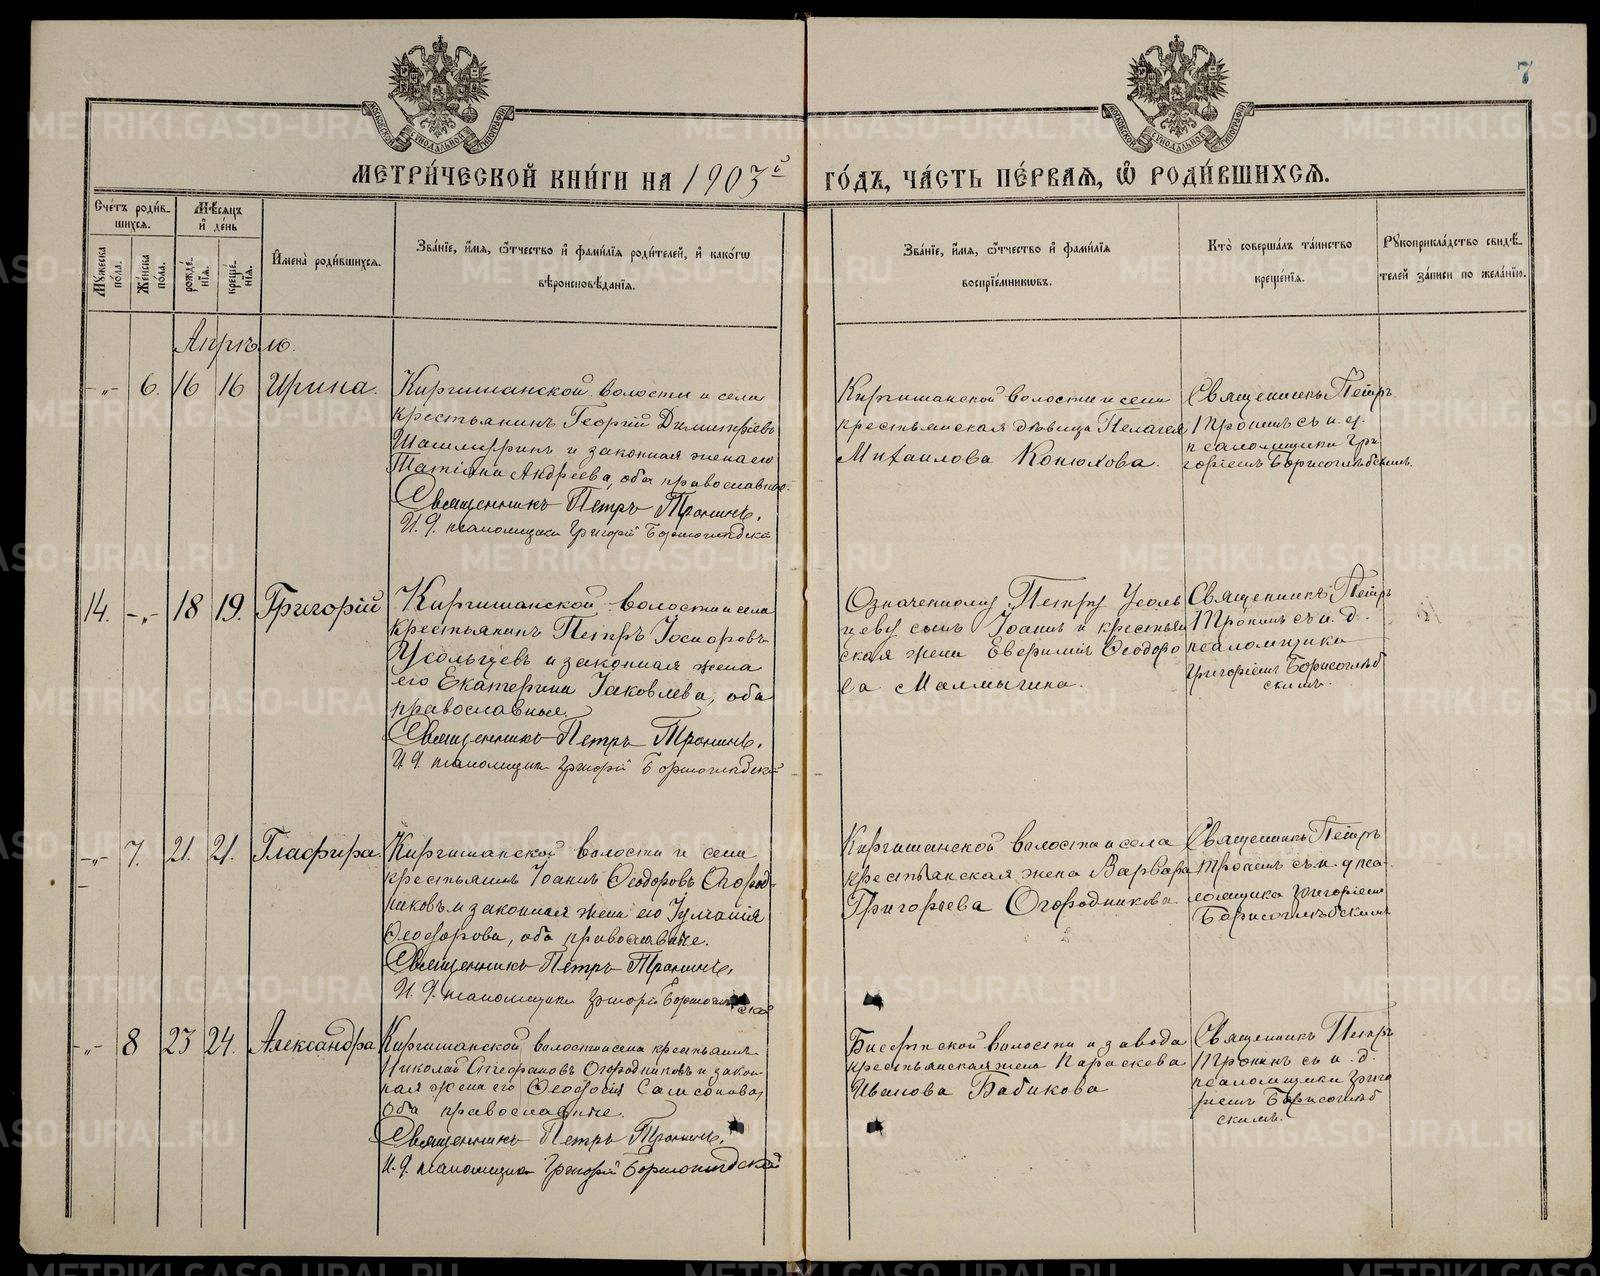 7
МОСКОВСКОЙ СѴНОДАЛЬНОЙ ТИПОГРАФІИ
МОСКОВСКОЙ СѴНОДАЛЬНОЙ ТИПОГРАФІИ
МЕТРИ́ЧЕСКОЙ КНИ́ГИ НА 1903й ГО́ДЪ, ЧА́СТЬ ПЕ́РВАѦ, Ѽ РОДИ́ВШИХСѦ.
Сче́тъ роди́в-
шихсѧ.
Мѣ́сѧцъ
и҆ де́нь
Мꙋ́жеска
по́ла.
Же́нска
по́ла.
рожде́-
нїѧ.
креще́-
нїѧ.
И҆мена̀ роди́вшихсѧ.
Зва́нїе, и҆́мѧ, ѻ҆́тчество и҆ фами́лїѧ роди́телей, и҆ како́гѡ
вѣроисповѣ́данїѧ.
Зва́нїе, и҆́мѧ, ѻ҆́тчество и҆ фами́лїѧ
воспрїе́мникѡвъ.
Кто̀ соверша́лъ та́инство
креще́нїѧ.
Рꙋкоприкла́дство свидѣ́-
телей за́писи по жела́нїю.
Апрѣль.
-„- 6. 16 16 Ирина.
Киргишанской волости и села
крестьянинъ Георгій Димитріевъ
и законная жена его
Татіана Андреева, оба православные.
Священникъ Петръ Тронинъ.
И. д. псаломщика Григорій Борисоглѣбскій
Киргишанской волости и села
крестьянская дѣвица Пелагея
Михаилова Конюхова.
Священникъ Петръ
Тронинъ съ и. д.
псаломщика Гри
горіемъ Борисоглѣбскимъ.
14. -„- 18 19. Григорій
Киргишанской волости и села
крестьянинъ Петръ Іосифовъ
Усольцевъ и законная жена
его Екатерина Іаковлева, оба
православные.
Священникъ Петръ Тронинъ.
И. д. псаломщика Григорій Борисоглѣбскій
Означенному Петру Усоль
цеву сынъ Іоаннъ и крестьян
ская жена Евфимія Ѳеодоро
ва Малмыгина.
Священникъ Петръ
Тронинъ съ и. д.
псаломщика
Григоріемъ Борисоглѣб
скимъ.
-„- 7. 21. 21. Глафира.
Киргишанской волости и села
крестьянинъ Іоаннъ Ѳеодоровъ Огород-
никовъ и законная жена его Іуліанія
Ѳеодорова, оба православные.
Священникъ Петръ Тронинъ.
И. д. псаломщика Григорій Борисоглѣбскій
Киргишанской волости и села
крестьянская жена Варвара
Григорьева Огородникова
Священникъ Петръ
Тронинъ съ и. д. пса-
ломщика Григоріемъ
Борисоглѣбскимъ
-„- 8 23 24. Александра
Киргишанской волости и села крестьянинъ
Николай Стефановъ Огородниковъ и закон-
ная жена его Ѳеодосія Самсонова,
оба православные.
Священникъ Петръ Тронинъ.
И. д. псаломщика Григорій Борисоглѣбскій
Бисертской волости и завода
крестьянская жена Параскева
Иванова Бабикова
Священникъ Петръ
Тронинъ съ и. д.
псаломщика Григо
ріемъ Борисоглѣб
скимъ.
METRIKI.GASO-URAL.RU